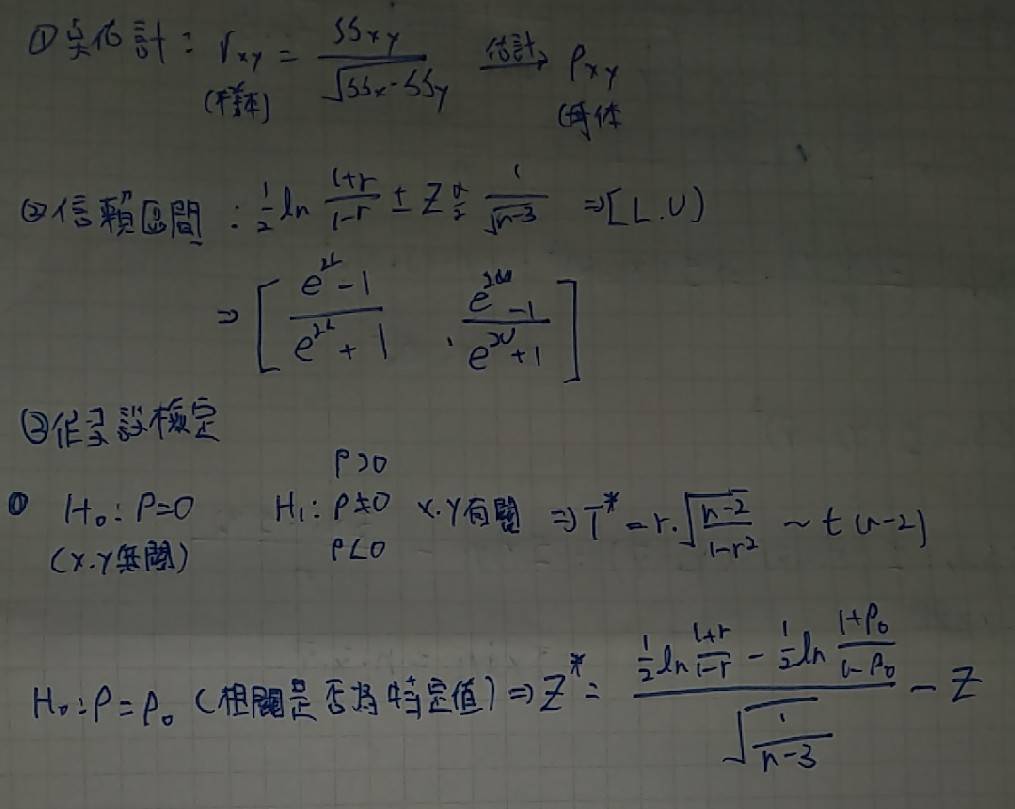 ①點估計：r_xy = SS_xy / √(SS_x · SS_y) 估計→ ρ_xy
(樣本) (母体
②信賴區間：1/2 ln (1+r)/(1-r) ± Z α/2 1/√(n-3) ⇒ [L.U)
⇒ [ (e^{2L} - 1)/(e^{2L} + 1) , (e^{2U} - 1)/(e^{2U} + 1) ]
③假設檢定
ρ>0
① H₀: ρ=0 H₁: ρ≠0 X.Y有關 ⇒ T* = r·√((n-2)/(1-r²)) ~ t(n-2)
(X.Y無關) ρ<0
H₀: ρ = ρ₀ (相關是否為特定值) ⇒ Z* = (1/2 ln (1+r)/(1-r) - 1/2 ln (1+ρ₀)/(1-ρ₀)) / √(1/(n-3)) ~ Z